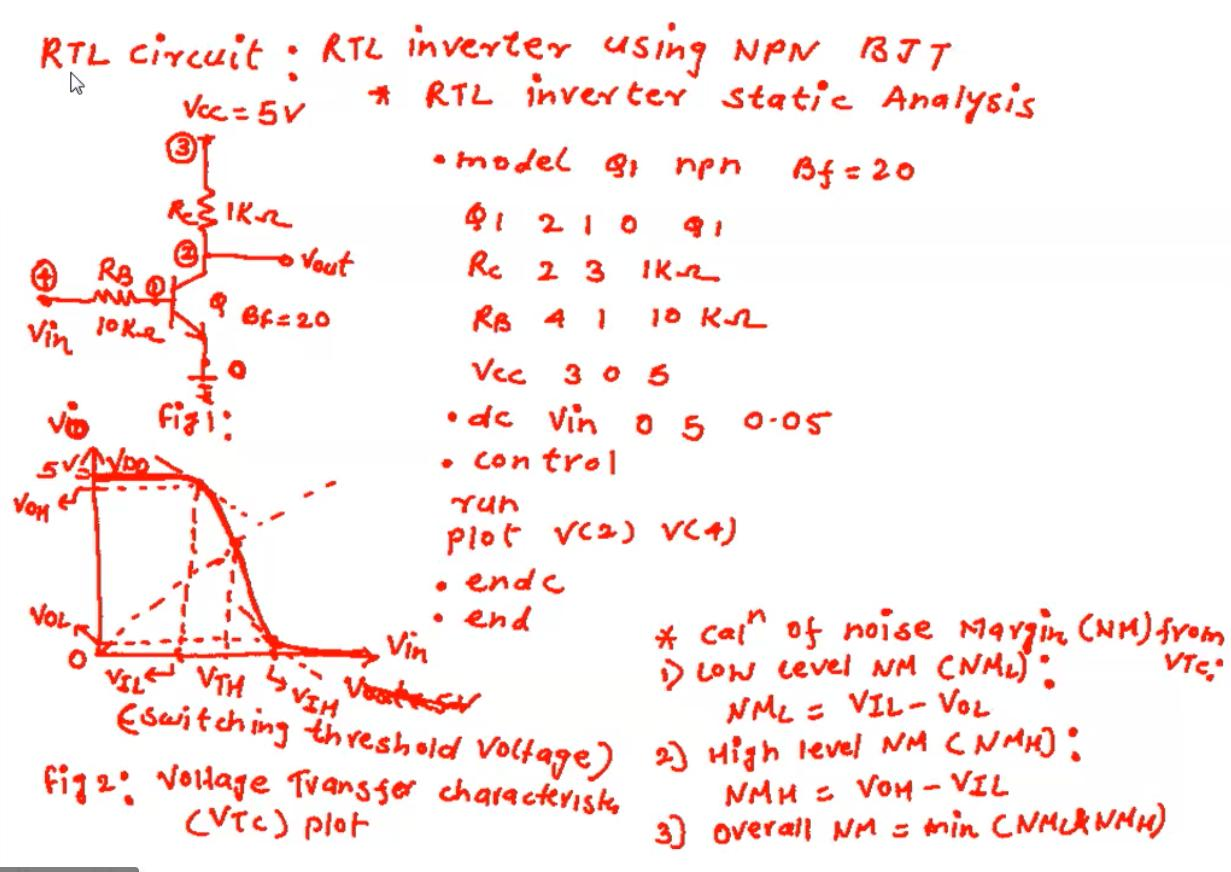 RTL circuit : RTL inverter using NPN BJT
* RTL inverter static Analysis
Vcc = 5V
3
Rc 1KΩ
2
Vout
4
RB
1
Vin
10KΩ
Q Bf = 20
0
fig 1:
.model Q1 npn Bf = 20
Q1 2 1 0 Q1
Rc 2 3 1KΩ
RB 4 1 10 KΩ
Vcc 3 0 5
.dc Vin 0 5 0.05
.control
run
plot V(2) V(4)
.endc
.end
5V
VDD
VOH
VOL
0
Vin
VIL
VTH
VIH
(switching threshold Voltage)
fig 2: Voltage Transfer characterists
(VTC) plot
* Calⁿ of noise Margin (NM) from
VTC:
1) Low Level NM (NML):
NML = VIL - VOL
2) High level NM (NMH):
NMH = VOH - VIL
3) overall NM = min (NML & NMH)